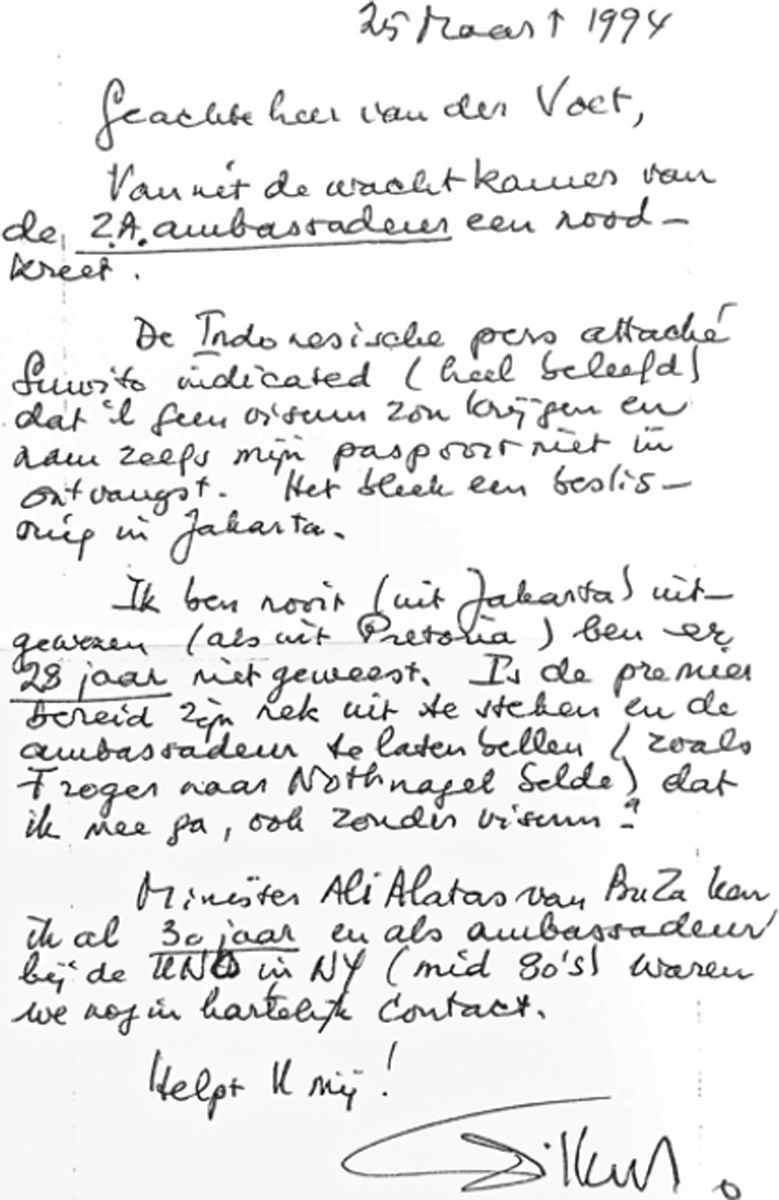 25 Maart 1994
Geachte heer van der Voet,
Van uit de wachtkamer van
de Z.A. ambassadeur een nood-
kreet.
De Indonesische pers attaché
Suwito indicated (heel beleefd)
dat 'k geen visum zou krijgen en
nam zelfs mijn paspoort niet in
ontvangst. Het bleek een beslis-
sing in Jakarta.
Ik ben nooit (uit Jakarta) uit-
gewezen (als uit Pretoria) ben er
28 jaar niet geweest. Is de premier
bereid zijn nek uit te steken en de
ambassadeur te laten bellen (zoals
naar Nothnagel belde) dat
ik mee ga, ook zonder visum?
Minister Ali Alatas van BuZa ken
ik al 30 jaar en als ambassadeur
bij de UNO in NY (mid 80's) waren
we nog in hartelijk contact.
Helpt U mij!